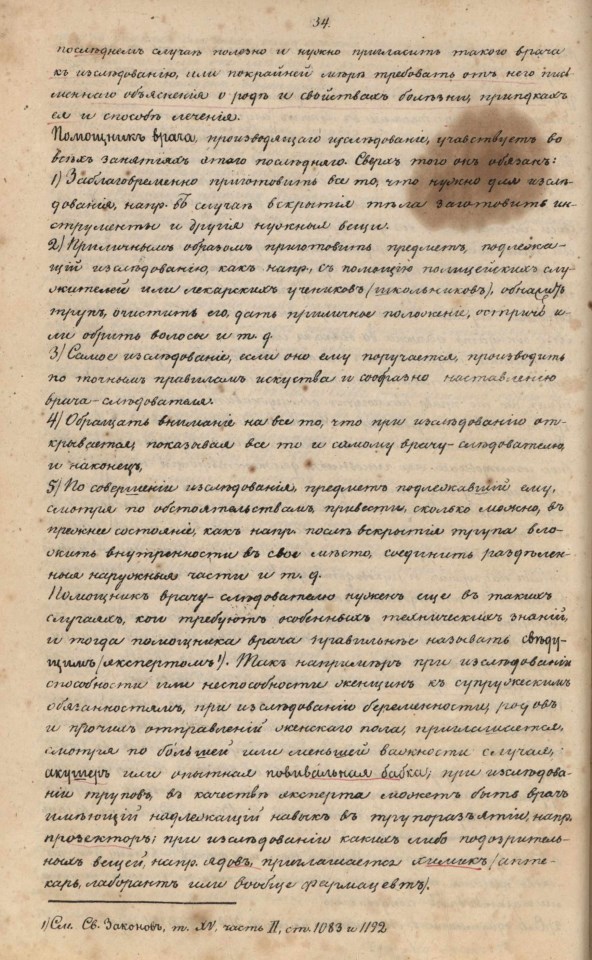 34.
послѣднемъ случаѣ полезно и нужно пригласить такого врача
къ изслѣдованію, или покрайней мѣрѣ требовать отъ него пись
меннаго объясненія о родѣ и свойствахъ болѣзни, припдкахъ
ея и способѣ леченія.
Помощникъ врача, производящаго изслѣдованіе, учавствуетъ во
всѣхъ занятіяхъ этого послѣдняго. Сверхъ того онъ обязанъ:
1) Заблаговременно приготовить все то, что нужно для изслѣ-
дованія, напр. въ случаѣ вскрытія тѣла заготовить ин-
струменты и другія нужныя вещи.
2) Приличнымъ образомъ приготовить предметъ, подлежа-
щій изслѣдованію, какъ напр. съ помощію полицейскихъ слу
жителей или лекарскихъ учениковъ (школьниковъ), обнажить
трупъ, очистить его, дать приличное положеніе, остричь и-
ли обрить волосы и т. д.
3) Самое изслѣдованіе, если оно ему поручается, производить
по точнымъ правиламъ искуства и сообразно наставленію
врача-слѣдователя.
4) Обращать вниманіе на все то, что при изслѣдованіи от-
крывается, показывая все то и самому врачу-слѣдователю,
и наконецъ,
5) По совершеніи изслѣдованія, предметъ подлежавшій ему,
смотря по обстоятельствамъ, привести, сколько можно, въ
прежнее состояніе, какъ напр. послѣ вскрытія трупа вло-
жить внутренности въ свое мѣсто, соединить раздѣлен-
ныя наружныя части и т. д.
Помощникъ врачу-слѣдователю нуженъ еще въ такихъ
случаяхъ, кои требуютъ особенныхъ техническихъ знаній,
и тогда помощника врача правильнѣе называть свѣду-
щимъ (экспертомъ¹). Такъ напримѣръ при изслѣдованіи
способности или неспособности женщинъ къ супружескимъ
обязанностямъ, при изслѣдованіи беременности, родовъ
и прочихъ отправленій женскаго пола, приглашается,
смотря по большей или меньшей важности случая,
акушеръ или опытная повивальная бабка; при изслѣдова-
ніи труповъ, въ качествѣ эксперта можетъ быть врачъ
имѣющій надлежащій навыкъ въ трупоразъятіи, напр.
прозекторъ; при изслѣдованіи какихъ либо подозритель-
ныхъ вещей, напр. ядовъ, приглашается химикъ (апте-
карь, лаборантъ или вообще фармацевтъ).
1) См. Св. Законовъ, т. XV, часть II, ст. 1083 и 1192